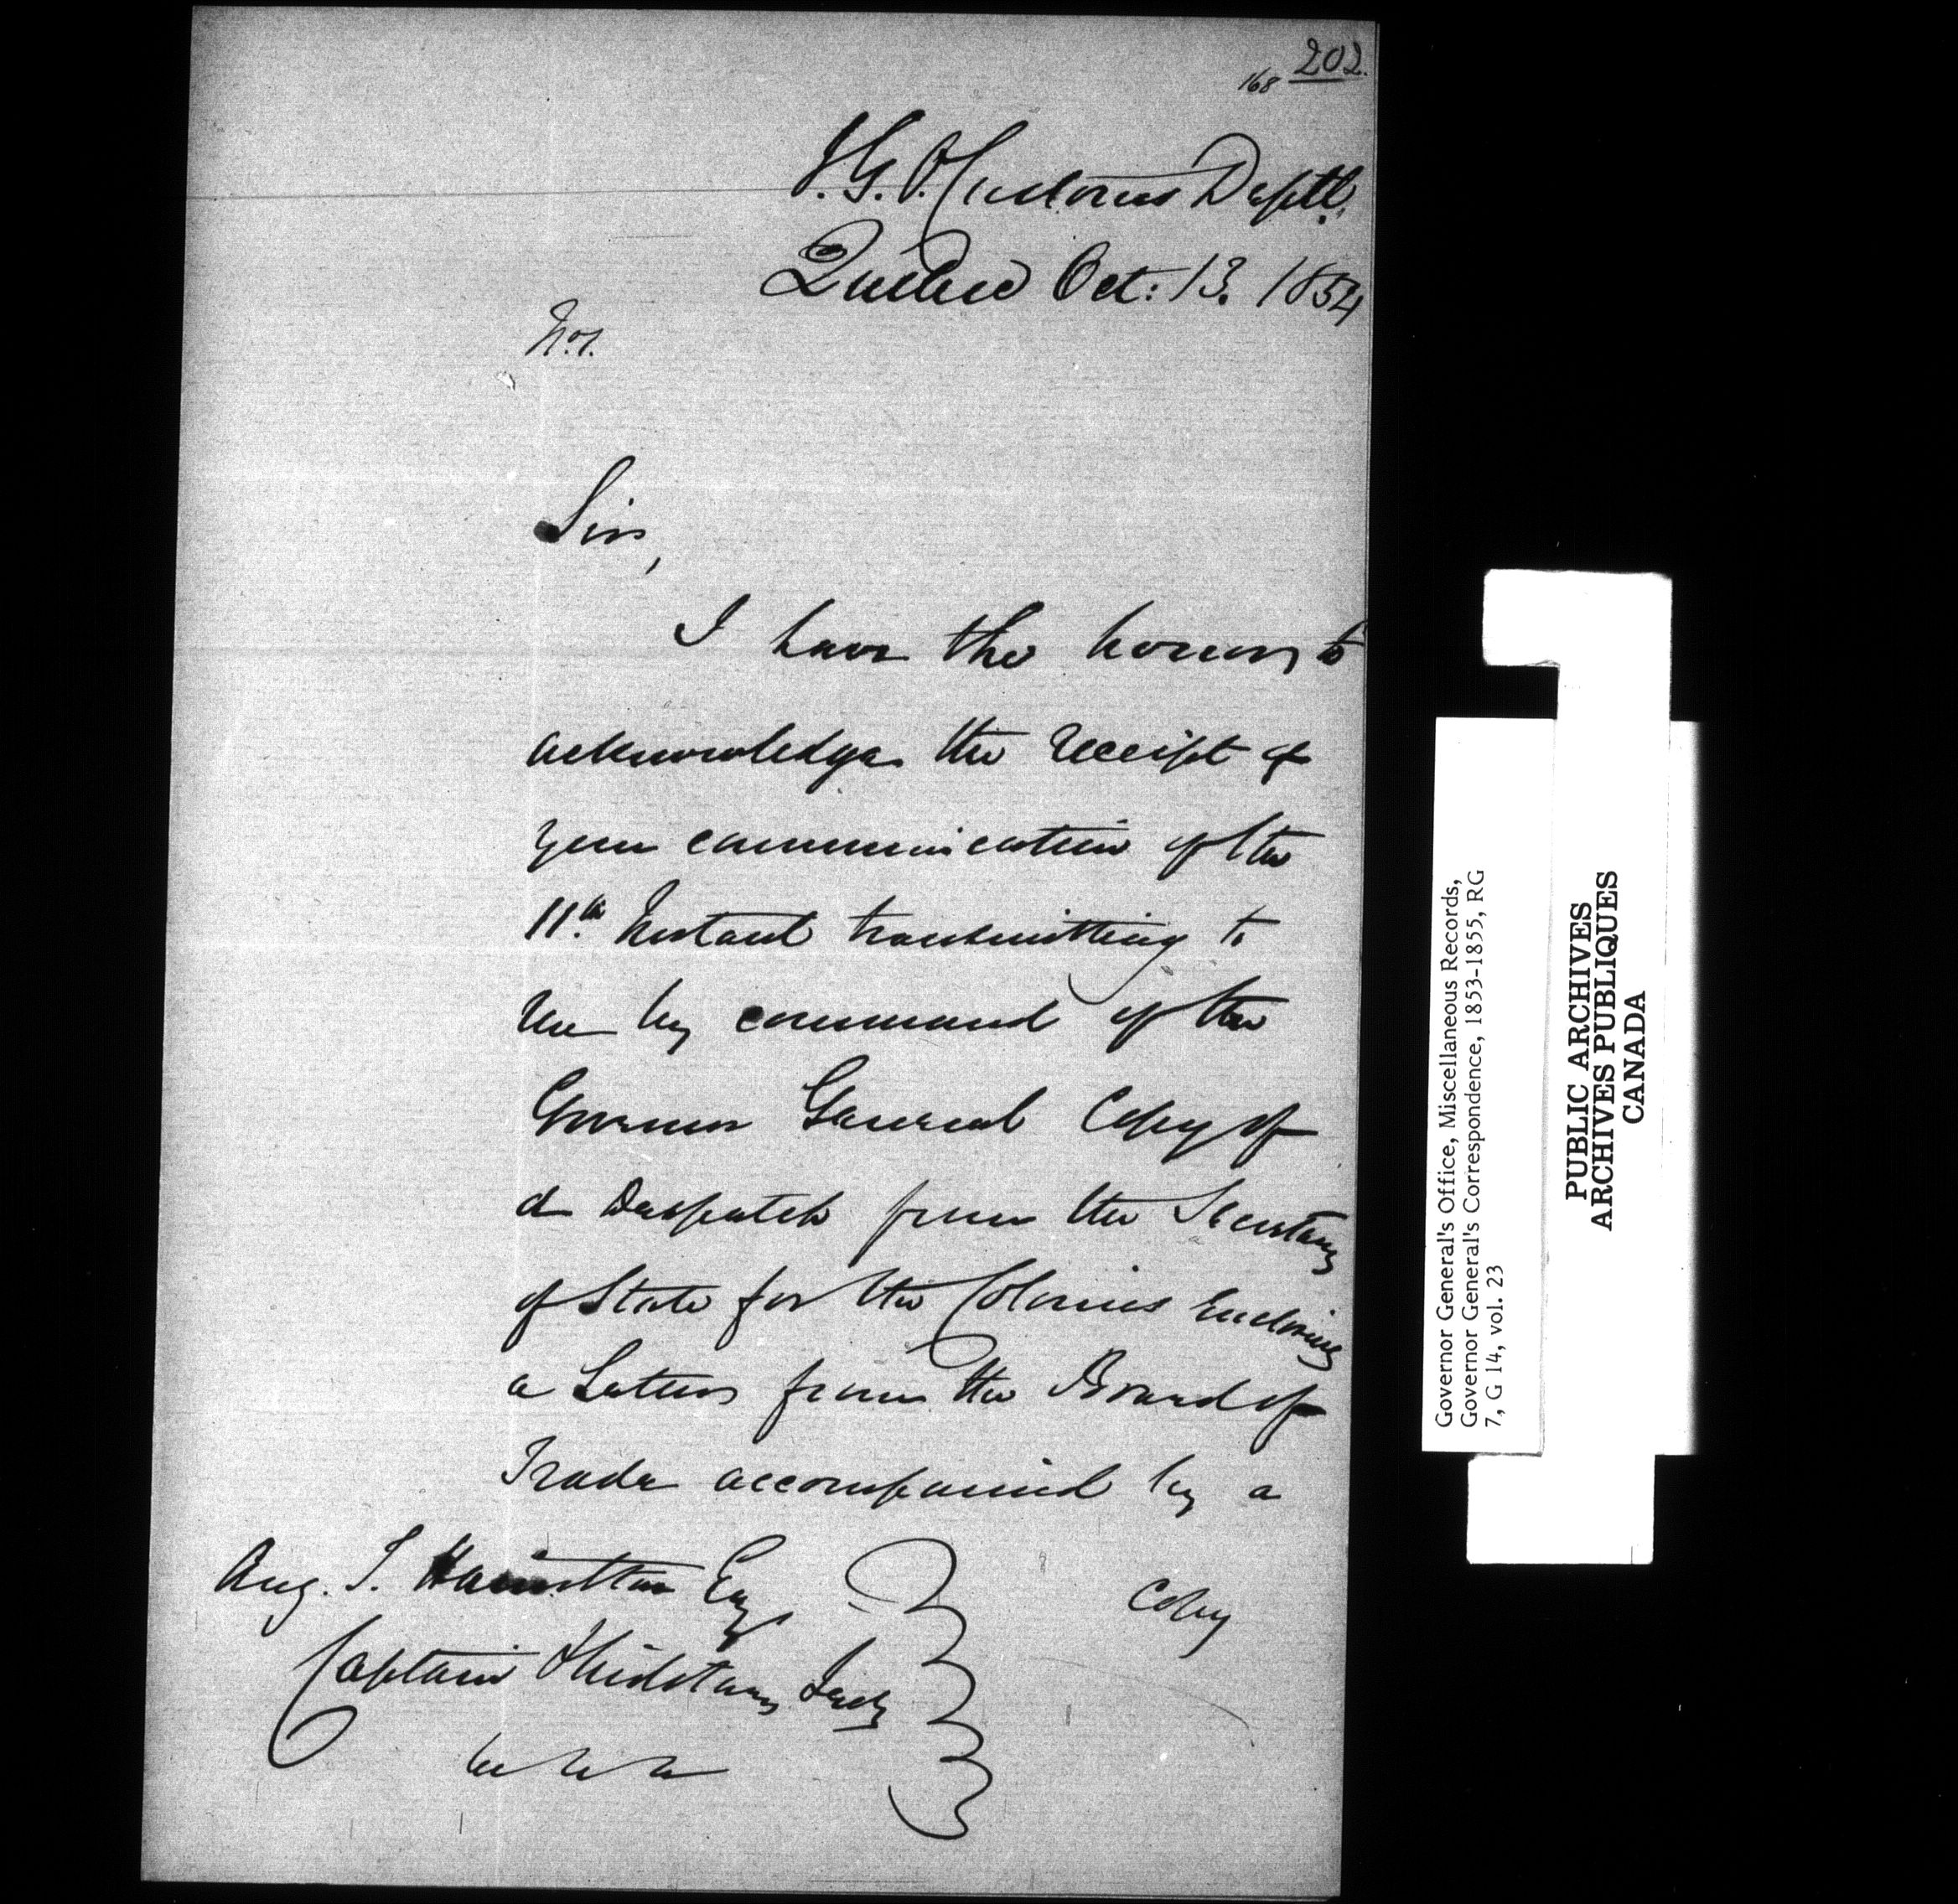 168 202.
I.G.O. Customs Deptt.
Quebec Oct: 13. 1854
No 1.
Sir,
I have the honor to
acknowledge the receipt of
your communication of the
11th Instant transmitting to
me by command of the
Governor General Copy of
a Despatch from the Secretary
of State for the Colonies Enclosing
a Letter from the Board of
Trade accompanied by a
Aug. T. Hamilton Esq
Captain Military Secty
Copy
Governor General's Office, Miscellaneous Records,
Governor General's Correspondence, 1853-1855, RG
7, G 14, vol. 23
PUBLIC ARCHIVES
ARCHIVES PUBLIQUES
CANADA